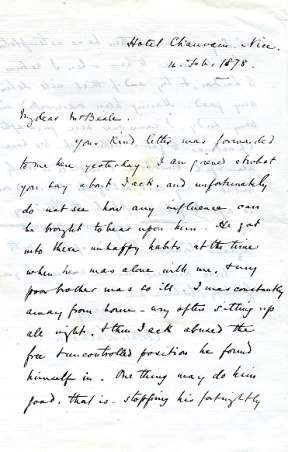 Hotel Chauvain. Nice.
4. Feb. 1878.
My dear Mr Beale.
Your kind letter was forwarded
to me here yesterday. I am grieved at what
you say about Jack. and unfortunately
do not see how any influence can
be brought to bear upon him. He got
into these unhappy habits at the time
when he was alone with me, & my
poor brother was so ill. I was constantly
away from home - very often sitting up
all night. & then Jack abused the
free & uncontrolled position he found
himself in. One thing may do him
good, that is - stopping his fortnightly